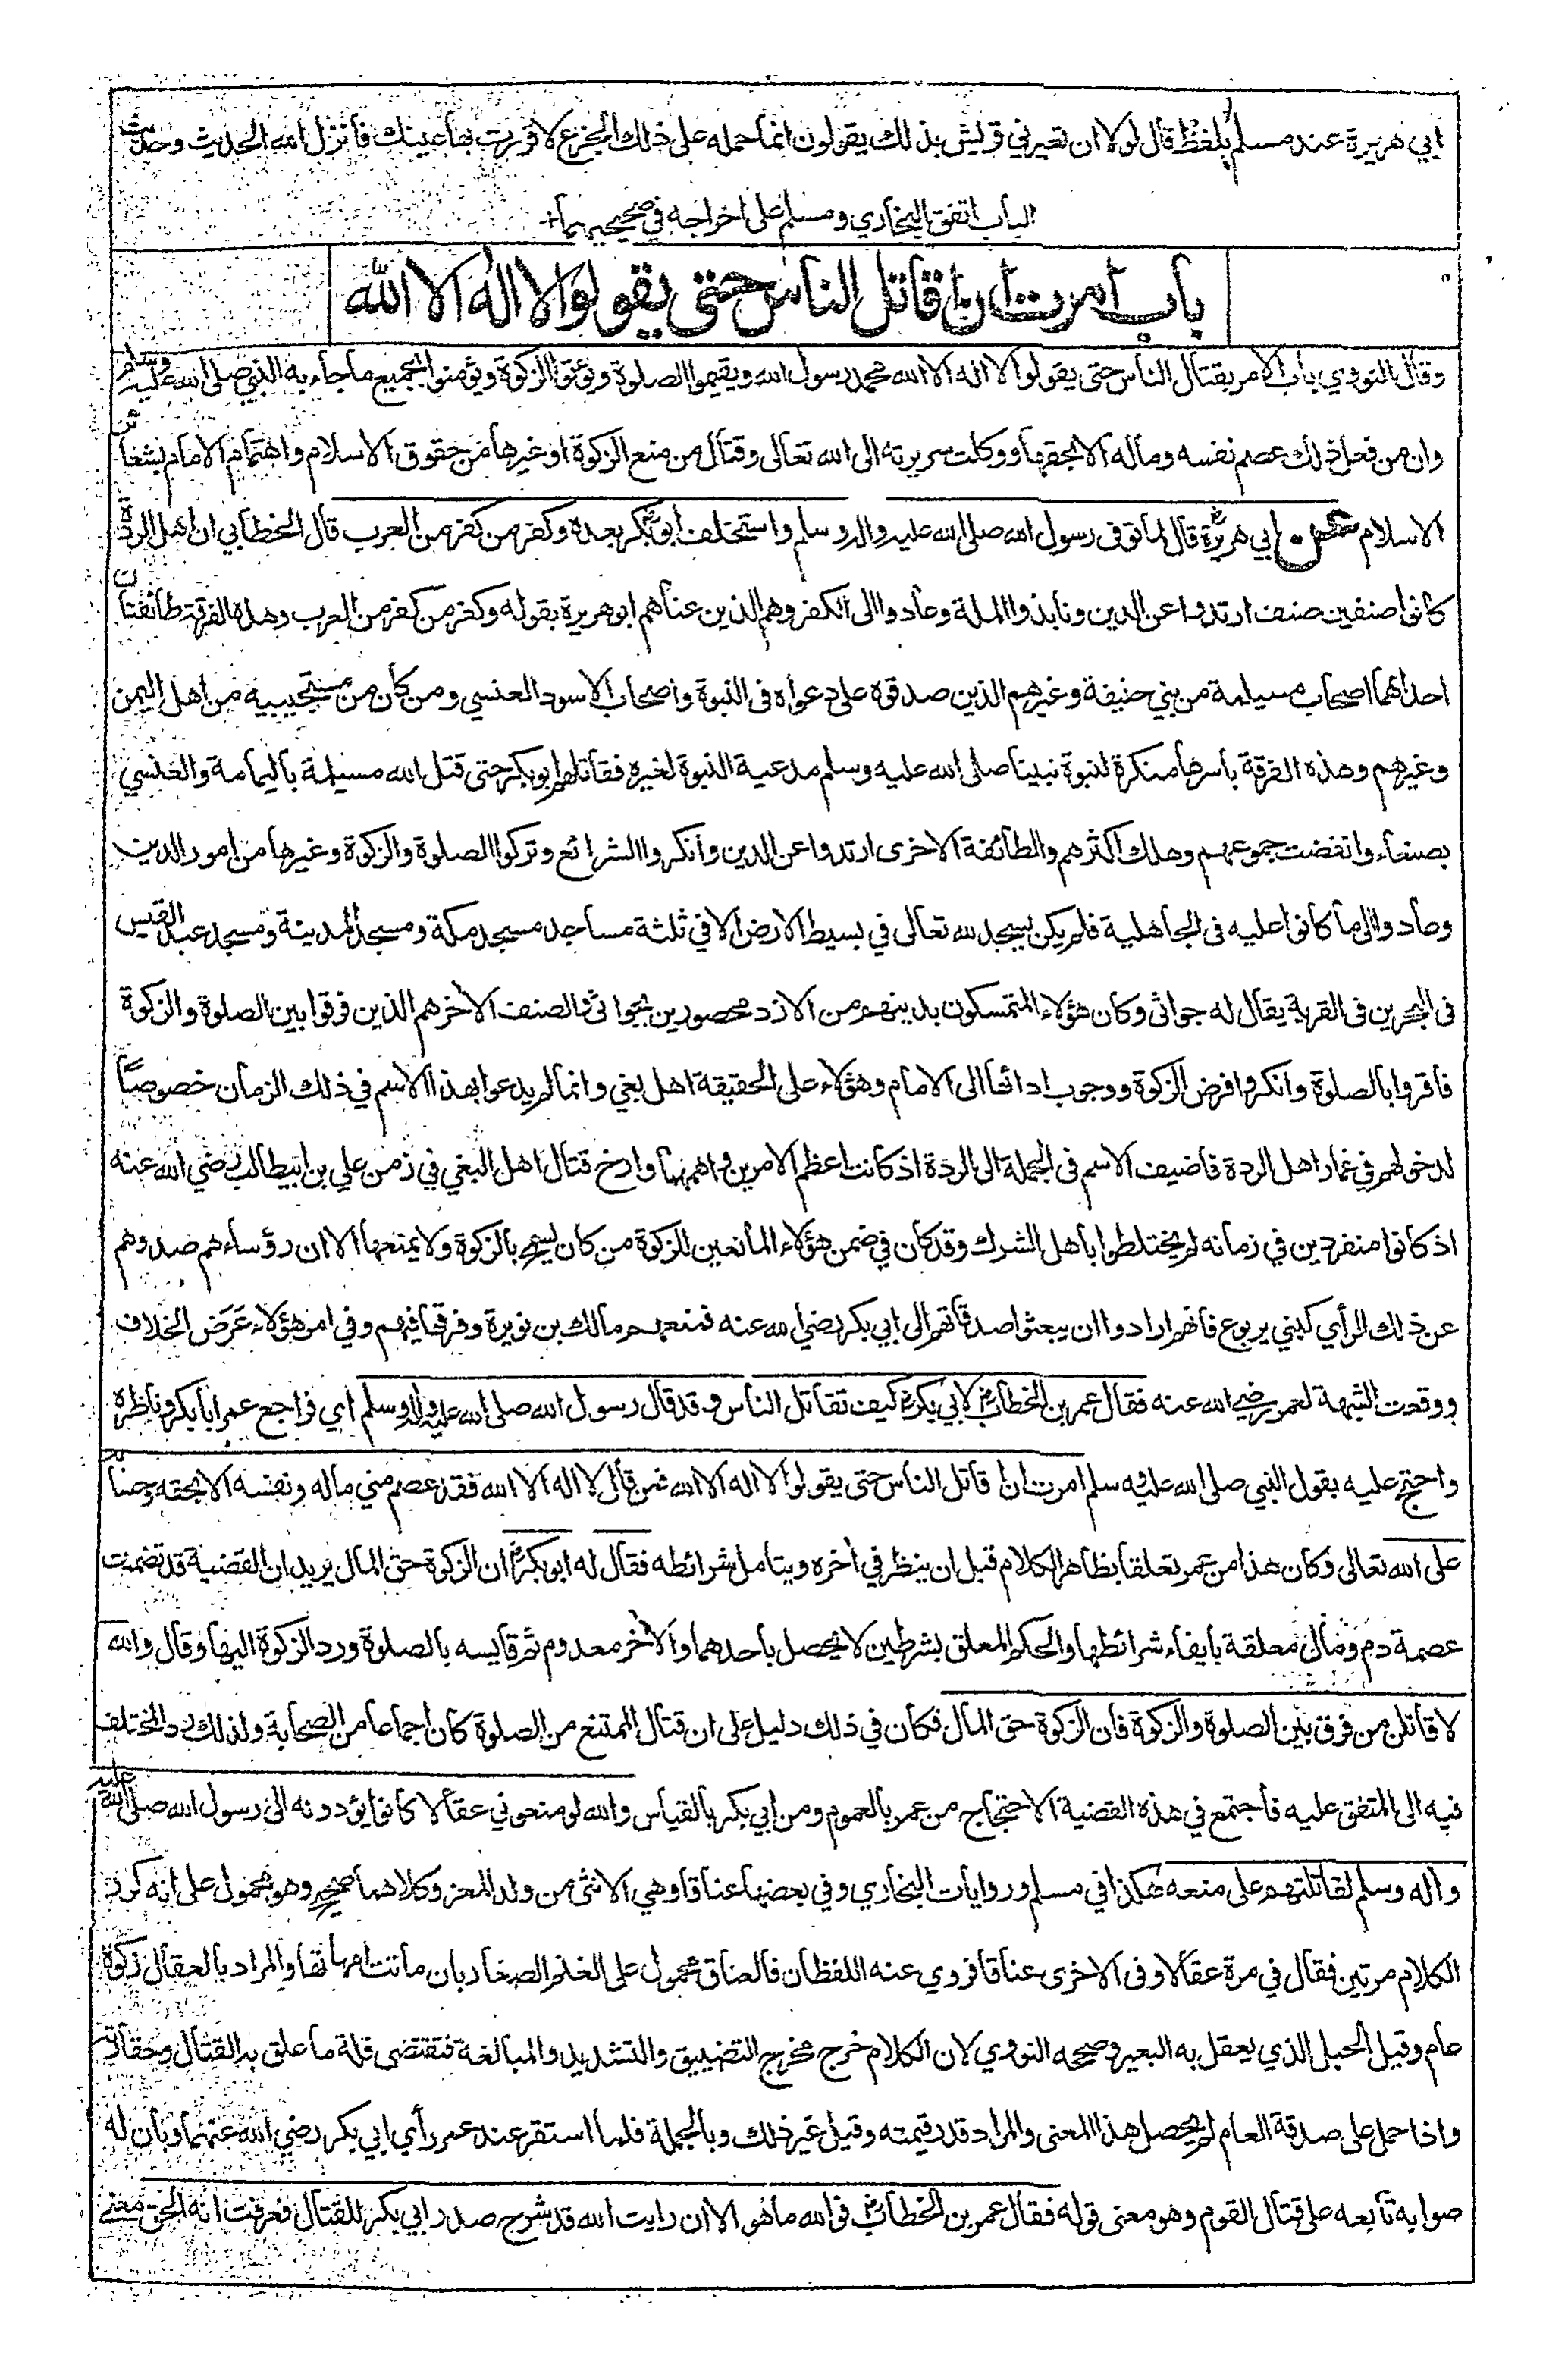 ابي هريرة عند مسلم بلفظ قال لولا ان تعيرني قريش بذلك يقولون انما حمله على ذلك الجزع لاقررت بها عينك فأنزل الله الحديث وحديث
الباب اتفق البخاري ومسلم على اخراجه في صحيحيهما+
باب امرت ان اقاتل الناس حتى يقولوا لا اله الا الله
وقال النووي باب الامر بقتال الناس حتى يقولوا لا اله الا الله محمد رسول الله ويقيموا الصلوة ويؤتوا الزكوة ويؤمنوا بجميع ما جاء به النبي صلى الله عليه وسلم
وان من فعل ذلك عصم نفسه وماله الا بحقها ووكلت سريرته الى الله تعالى وقتال من منع الزكوة او غيرها من حقوق الاسلام واهتمام الامام بشعائر
الاسلام عن ابي هريرة قال لما توفى رسول الله صلى الله عليه واله وسلم واستخلف ابو بكر بعده وكفر من كفر من العرب قال الخطابي ان اهل الردة
كانوا صنفين صنف ارتدوا عن الدين ونابذوا الملة وعادوا الى الكفر وهم الذين عناهم ابو هريرة بقوله وكفر من كفر من العرب وهذه الفرقة طائفتان
احداهما اصحاب مسيلمة من بني حنيفة وغيرهم الذين صدقوه على دعواه في النبوة واصحاب الاسود العنسي ومن كان من مستجيبيه من اهل اليمن
وغيرهم وهذه الفرقة باسرها منكرة لنبوة نبينا صلى الله عليه وسلم مدعية النبوة لغيره فقاتلهم ابو بكر حتى قتل الله مسيلمة باليمامة والعنسي
بصنعاء وانفضت جموعهم وهلك اكثرهم والطائفة الاخرى ارتدوا عن الدين وانكروا الشرائع وتركوا الصلوة والزكوة وغيرها من امور الدين
وعادوا الى ما كانوا عليه في الجاهلية فلم يكن يسجد لله تعالى في بسيط الارض الا في ثلثة مساجد مسجد مكة ومسجد المدينة ومسجد عبد القيس
في البحرين في القرية يقال له جواثى وكان هؤلاء المتمسكون بدينهم من الازد محصورين بجواثى والصنف الاخر هم الذين فرقوا بين الصلوة والزكوة
فاقروا بالصلوة وانكروا فرض الزكوة ووجوب ادائها الى الامام وهؤلاء على الحقيقة اهل بغي وانما لم يدعوا بهذا الاسم في ذلك الزمان خصوصاً
لدخولهم في غمار اهل الردة فاضيف الاسم في الجملة الى الردة اذ كانت اعظم الامرين واهمهما وارخ قتال اهل البغي في زمن علي بن ابيطالب رضي الله عنه
اذ كانوا منفردين في زمانه لم يختلطوا باهل الشرك وقد كان في ضمن هؤلاء المانعين للزكوة من كان يسمح بالزكوة ولا يمنعها الا ان رؤساءهم صدوهم
عن ذلك الرأي كبني يربوع فانهم ارادوا ان يبعثوا صدقاتهم الى ابي بكر رضي الله عنه فمنعهم مالك بن نويرة وفرقها فيهم وفي امر هؤلاء عرض الخلاف
ووقعت الشبهة لعمر رضي الله عنه فقال عمر بن الخطاب لابي بكر كيف تقاتل الناس وقد قال رسول الله صلى الله عليه واله وسلم اي فراجع عمر ابا بكر وناظره
واحتج عليه بقول النبي صلى الله عليه سلم امرت ان اقاتل الناس حتى يقولوا لا اله الا الله فمن قال لا اله الا الله فقد عصم مني ماله ونفسه الا بحقه وحسابه
على الله تعالى وكان هذا من عمر تعلقا بظاهر الكلام قبل ان ينظر في اخره ويتامل شرائطه فقال له ابو بكر ان الزكوة حق المال يريد ان القضية قد تضمنت
عصمة دم ومال معلقة بايفاء شرائطها والحكم المعلق بشرطين لا يحصل باحدهما والاخر معدوم ثم قايسه بالصلوة ورد الزكوة اليها وقال والله
لاقاتلن من فرق بين الصلوة والزكوة فان الزكوة حق المال فكان في ذلك دليل على ان قتال الممتنع من الصلوة كان اجماعا من الصحابة ولذلك رد المختلف
فيه الى المتفق عليه فاجتمع في هذه القضية الاحتجاج من عمر بالعموم ومن ابي بكر بالقياس والله لو منعوني عقالا كانوا يؤدونه الى رسول الله صلى الله عليه
واله وسلم لقاتلتهم على منعه هكذا في مسلم وروايات البخاري وفي بعضها عناقا وهي الانثى من ولد المعز وكلاهما صحيح وهو محمول على انه كرر
الكلام مرتين فقال في مرة عقالا وفي الاخرى عناقا فروي عنه اللفظان فالعناق محمول على الغنم الصغار بان ماتت امهاتها والمراد بالعقال زكوة
عام وقيل الحبل الذي يعقل به البعير وصححه النووي لان الكلام خرج مخرج التضييق والتشديد والمبالغة فتقتضي قلة ما علق به القتال وحقارته
واذا حمل على صدقة العام لم يحصل هذا المعنى والمراد قدر قيمته وقيل غير ذلك وبالجملة فلما استقر عند عمر رأي ابي بكر رضي الله عنهما وبان له
صوابه تابعه على قتال القوم وهو معنى قوله فقال عمر بن الخطاب فوالله ما هو الا ان رايت الله قد شرح صدر ابي بكر للقتال فعرفت انه الحق معنى